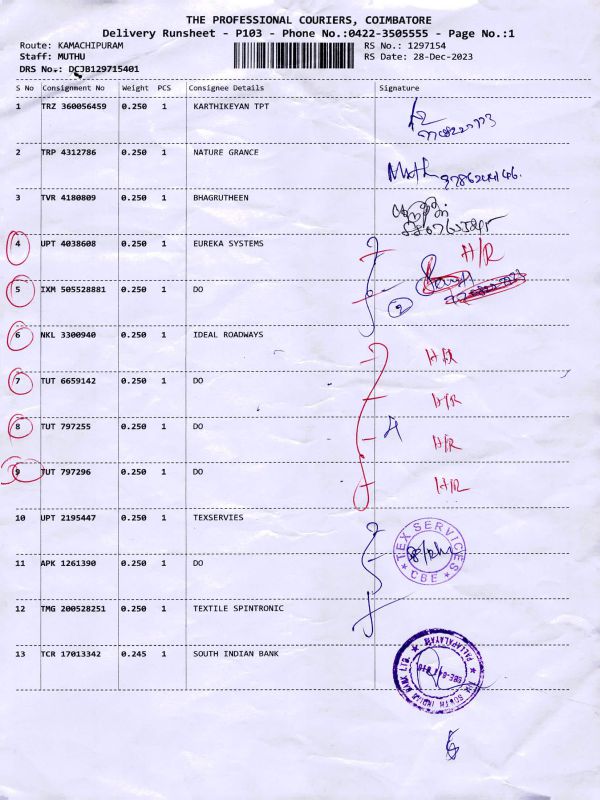 THE PROFESSIONAL COURIERS, COIMBATORE
Delivery Runsheet - P103 - Phone No.:0422-3505555 - Page No.:1
Route: KAMACHIPURAM RS No.: 1297154
Staff: MUTHU RS Date: 28-Dec-2023
DRS No.: DCJB129715401
S No Consignment No Weight PCS Consignee Details Signature
1 TRZ 360056459 0.250 1 KARTHIKEYAN TPT
2 TRP 4312786 0.250 1 NATURE GRANCE
3 TVR 4180809 0.250 1 BHAGRUTHEEN
4 UPT 4038608 0.250 1 EUREKA SYSTEMS H/R
5 IXM 505528881 0.250 1 DO 2
6 NKL 3300940 0.250 1 IDEAL ROADWAYS H/R
7 TUT 6659142 0.250 1 DO H/R
8 TUT 797255 0.250 1 DO 4 H/R
9 TUT 797296 0.250 1 DO H/R
10 UPT 2195447 0.250 1 TEXSERVIES
TEX SERVICES
CBE
11 APK 1261390 0.250 1 DO
12 TMG 200528251 0.250 1 TEXTILE SPINTRONIC
13 TCR 17013342 0.245 1 SOUTH INDIAN BANK
THE SOUTH INDIAN BANK LTD.
PALLAPALAYAM